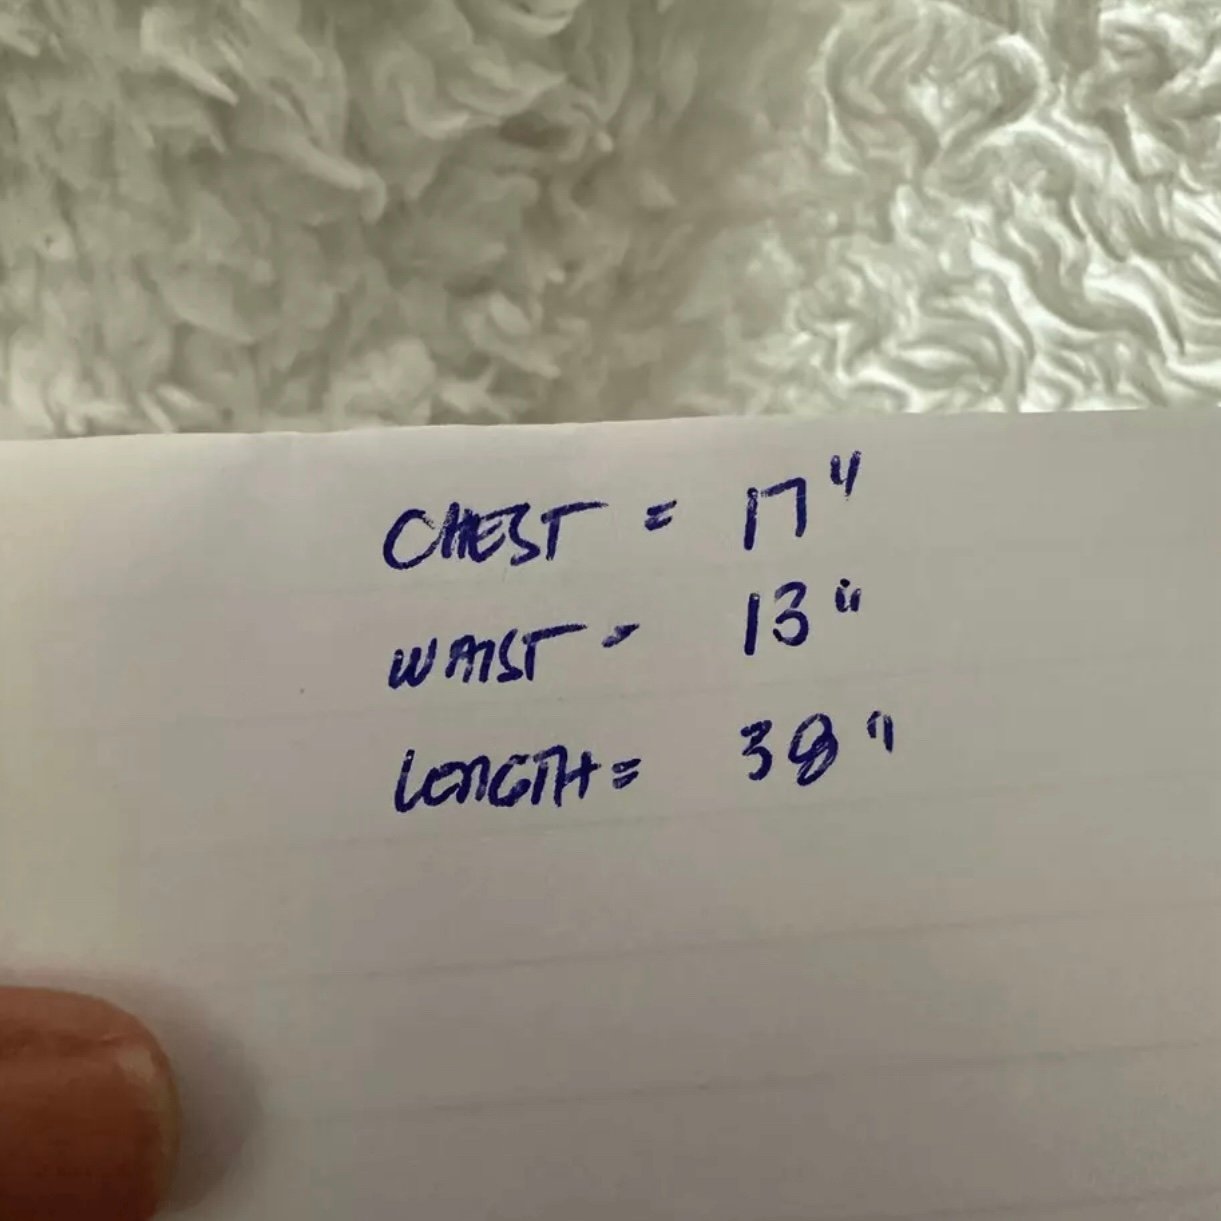 CHEST = 17"
WAIST - 13"
LENGTH = 38"